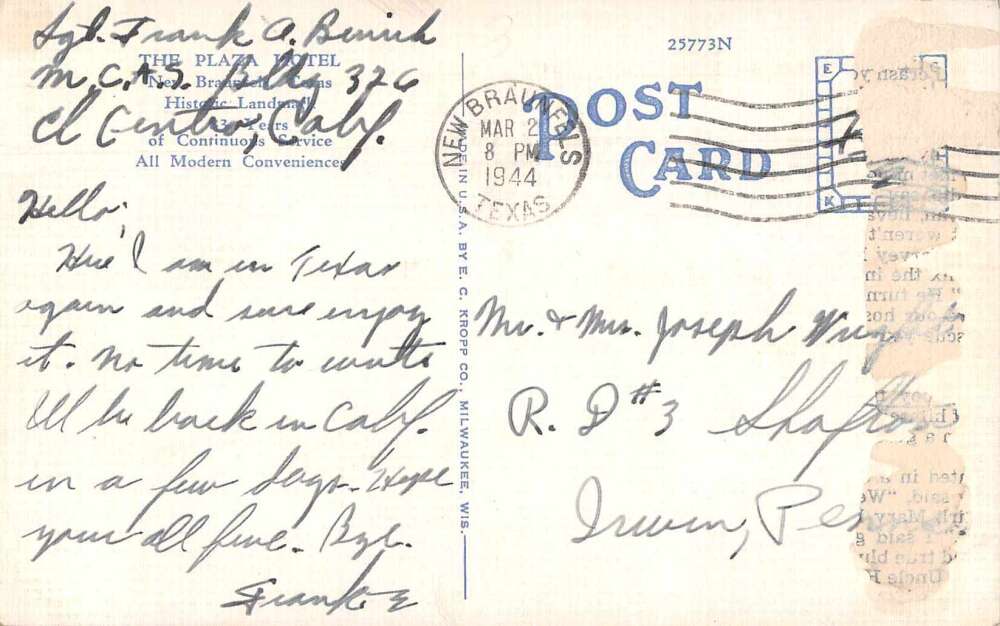 Sgt. Frank A.
M.C.A.S. Bldg 326
El Centro, Calif.
THE PLAZA HOTEL
New Braunfels, Texas
Historic Landmark
Years
of Continuous Service
All Modern Conveniences
Hello;
Here I am in Texas
again and sure enjoy
it. No time to write
Ill be back in Calif.
in a few days. Hope
your all fine. Bye.
Frank
MADE IN U.S.A. BY E. C. KROPP CO., MILWAUKEE, WIS.
25773N
POST
CARD
NEW BRAUNFELS
MAR 2
8 PM
1944
TEXAS
E
K
Mr. & Mrs. Joseph
R. D #3 Shafton
Irwin,